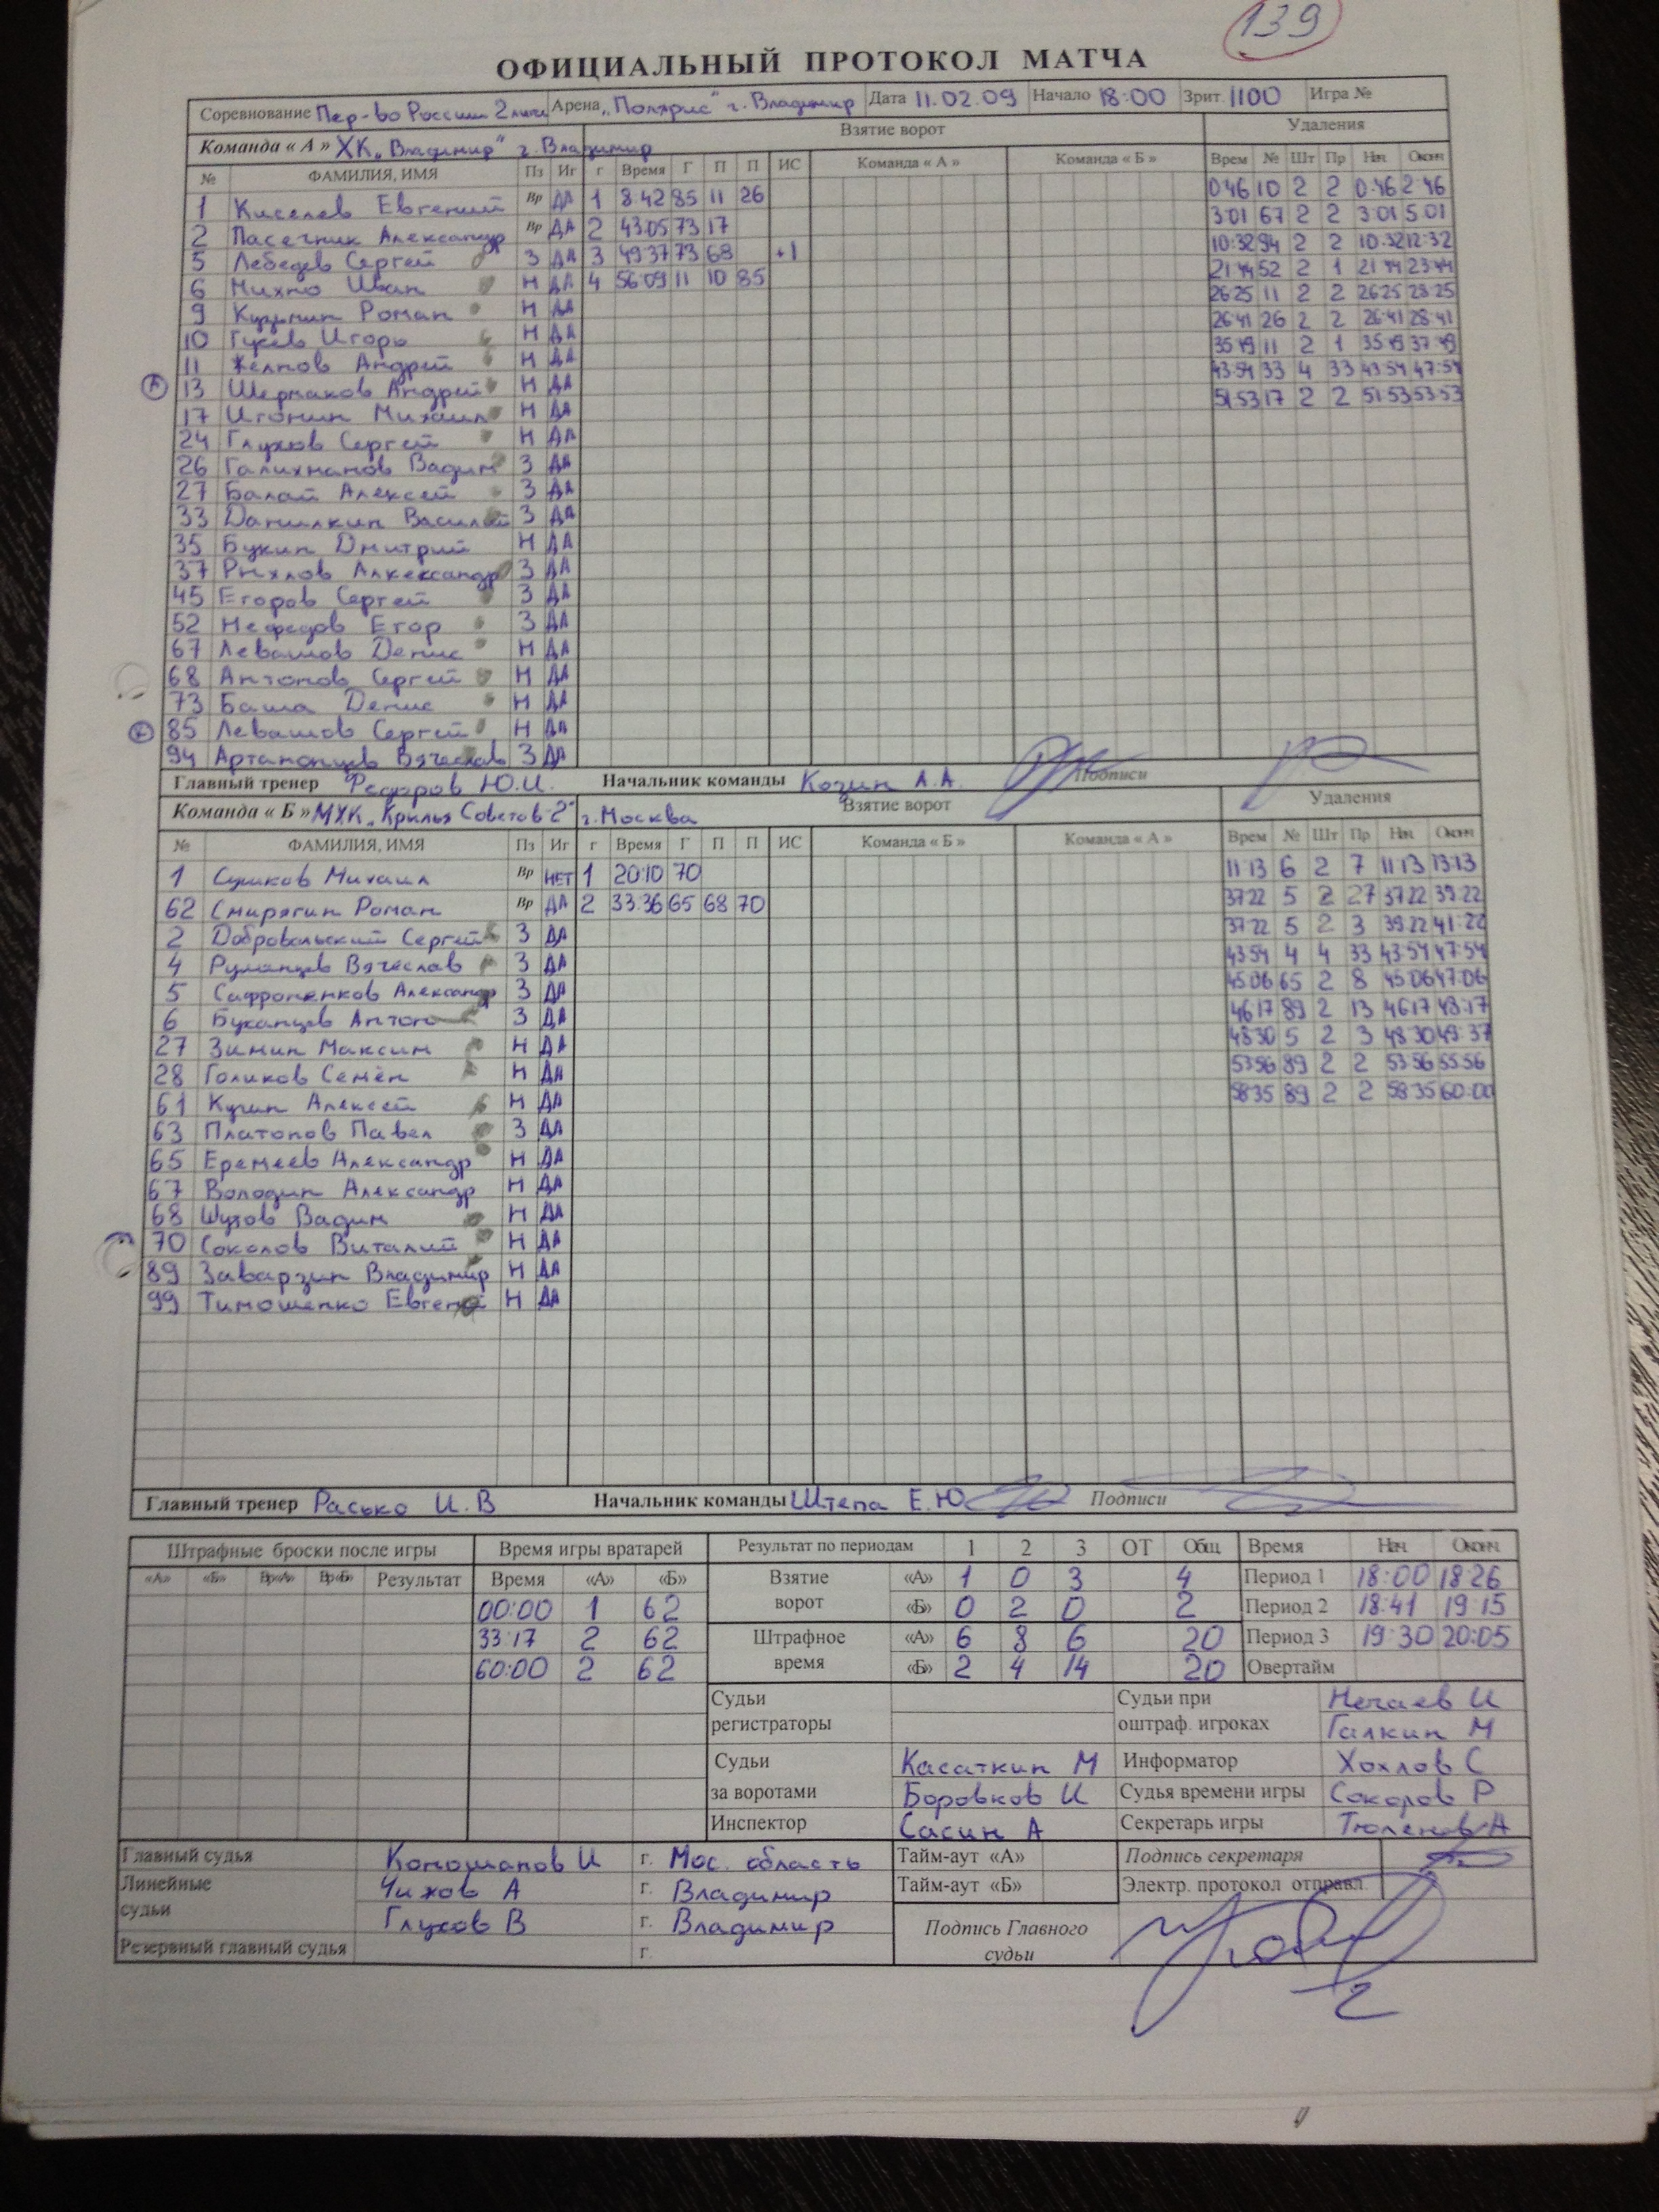 139
ОФИЦИАЛЬНЫЙ ПРОТОКОЛ МАТЧА
Соревнование Пер-во России 2 лига Арена „Полярис" г. Владимир Дата 11.02.09 Начало 18:00 Зрит. 1100 Игра №
Команда « А » ХК „Владимир" г. Владимир Взятие ворот Удаления
№ ФАМИЛИЯ, ИМЯ Пз Иг г Время Г П П ИС Команда « А » Команда « Б » Врем № Шт Пр Нач Оконч
1 Киселев Евгений Вр ДА 1 8:42 85 11 26 0:46 10 2 2 0:46 2:46
2 Пасечник Александр Вр ДА 2 43:05 73 17 3:01 67 2 2 3:01 5:01
5 Лебедев Сергей З ДА 3 49:37 73 68 +1 10:32 94 2 2 10:32 12:32
6 Михно Иван Н ДА 4 56:09 11 10 85 21:44 52 2 1 21:44 23:44
9 Кузьмин Роман Н ДА 26:25 11 2 2 26:25 28:25
10 Гусев Игорь Н ДА 26:41 26 2 2 26:41 28:41
11 Желнов Андрей Н ДА 35:49 11 2 1 35:49 37:49
А 13 Шермаков Андрей Н ДА 43:54 33 4 33 43:54 47:54
17 Игонин Михаил Н ДА 51:53 17 2 2 51:53 53:53
24 Глухов Сергей Н ДА
26 Галихманов Вадим З ДА
27 Балай Алексей З ДА
33 Данилкин Василий З ДА
35 Букин Дмитрий Н ДА
37 Рыхлов Алкександр З ДА
45 Егоров Сергей З ДА
52 Нефедов Егор З ДА
67 Левашов Денис Н ДА
68 Антонов Сергей Н ДА
73 Баша Денис Н ДА
К 85 Левашов Сергей Н ДА
94 Артамонцев Вячеслав З ДА
Главный тренер Федоров Ю.И. Начальник команды Козин А.А. Подписи
Команда « Б » МХК „Крылья Советов-2" г. Москва Взятие ворот Удаления
№ ФАМИЛИЯ, ИМЯ Пз Иг г Время Г П П ИС Команда « Б » Команда « А » Врем № Шт Пр Нач Оконч
1 Сушков Михаил Вр НЕТ 1 20:10 70 11:13 6 2 7 11:13 13:13
62 Смирягин Роман Вр ДА 2 33:36 65 68 70 37:22 5 2 27 37:22 39:22
2 Добровольский Сергей З ДА 37:22 5 2 3 39:22 41:22
4 Румянцев Вячеслав З ДА 43:54 4 4 33 43:54 47:54
5 Сафроненков Александр З ДА 45:06 65 2 8 45:06 47:06
6 Буканцев Антон З ДА 46:17 89 2 13 46:17 48:17
27 Зимин Максим Н ДА 48:30 5 2 3 48:30 49:37
28 Голиков Семён Н ДА 53:56 89 2 2 53:56 55:56
61 Кучин Алексей Н ДА 58:35 89 2 2 58:35 60:00
63 Платонов Павел З ДА
65 Еремеев Александр Н ДА
67 Володин Александр Н ДА
68 Шутов Вадим Н ДА
70 Соколов Виталий Н ДА
89 Заварзин Владимир Н ДА
99 Тимошенко Евгений Н ДА
Главный тренер Расько И.В Начальник команды Штепа Е.Ю Подписи
Штрафные броски после игры Время игры вратарей Результат по периодам 1 2 3 ОТ Общ Время Нач Оконч
«А» «Б» Вр«А» Вр«Б» Результат Время «А» «Б» Взятие ворот «А» 1 0 3 4 Период 1 18:00 18:26
00:00 1 62 «Б» 0 2 0 2 Период 2 18:41 19:15
33:17 2 62 Штрафное время «А» 6 8 6 20 Период 3 19:30 20:05
60:00 2 62 «Б» 2 4 14 20 Овертайм
Судьи регистраторы Судьи при оштраф. игроках Нечаев И
Галкин М
Судьи за воротами Касаткин М Информатор Хохлов С
Боровков И Судья времени игры Соколов Р
Инспектор Сасин А Секретарь игры Тюленев А
Главный судья Коношанов И г. Мос. область Тайм-аут «А» Подпись секретаря
Линейные судьи Чижов А г. Владимир Тайм-аут «Б» Электр. протокол отправл.
Глухов В г. Владимир Подпись Главного судьи
Резервный главный судья г.